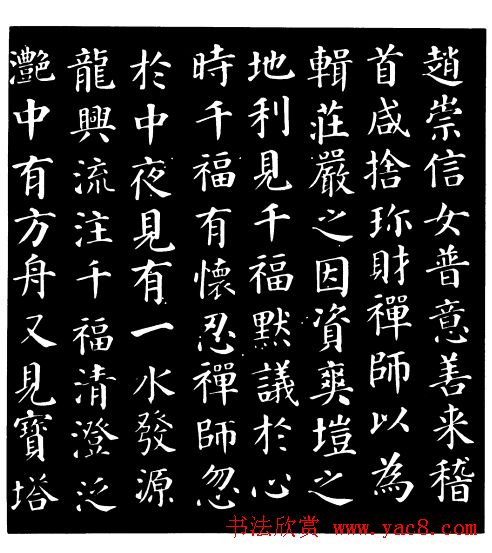 趙崇信女普意善来稽
首咸捨珎財禪師以為
輯莊嚴之因資爽塏之
地利見千福默議於心
時千福有懷忍禪師忽
於中夜見有一水發源
龍興流注千福清澄泛
灧中有方舟又見寶塔
书法欣赏 www.yac8.com